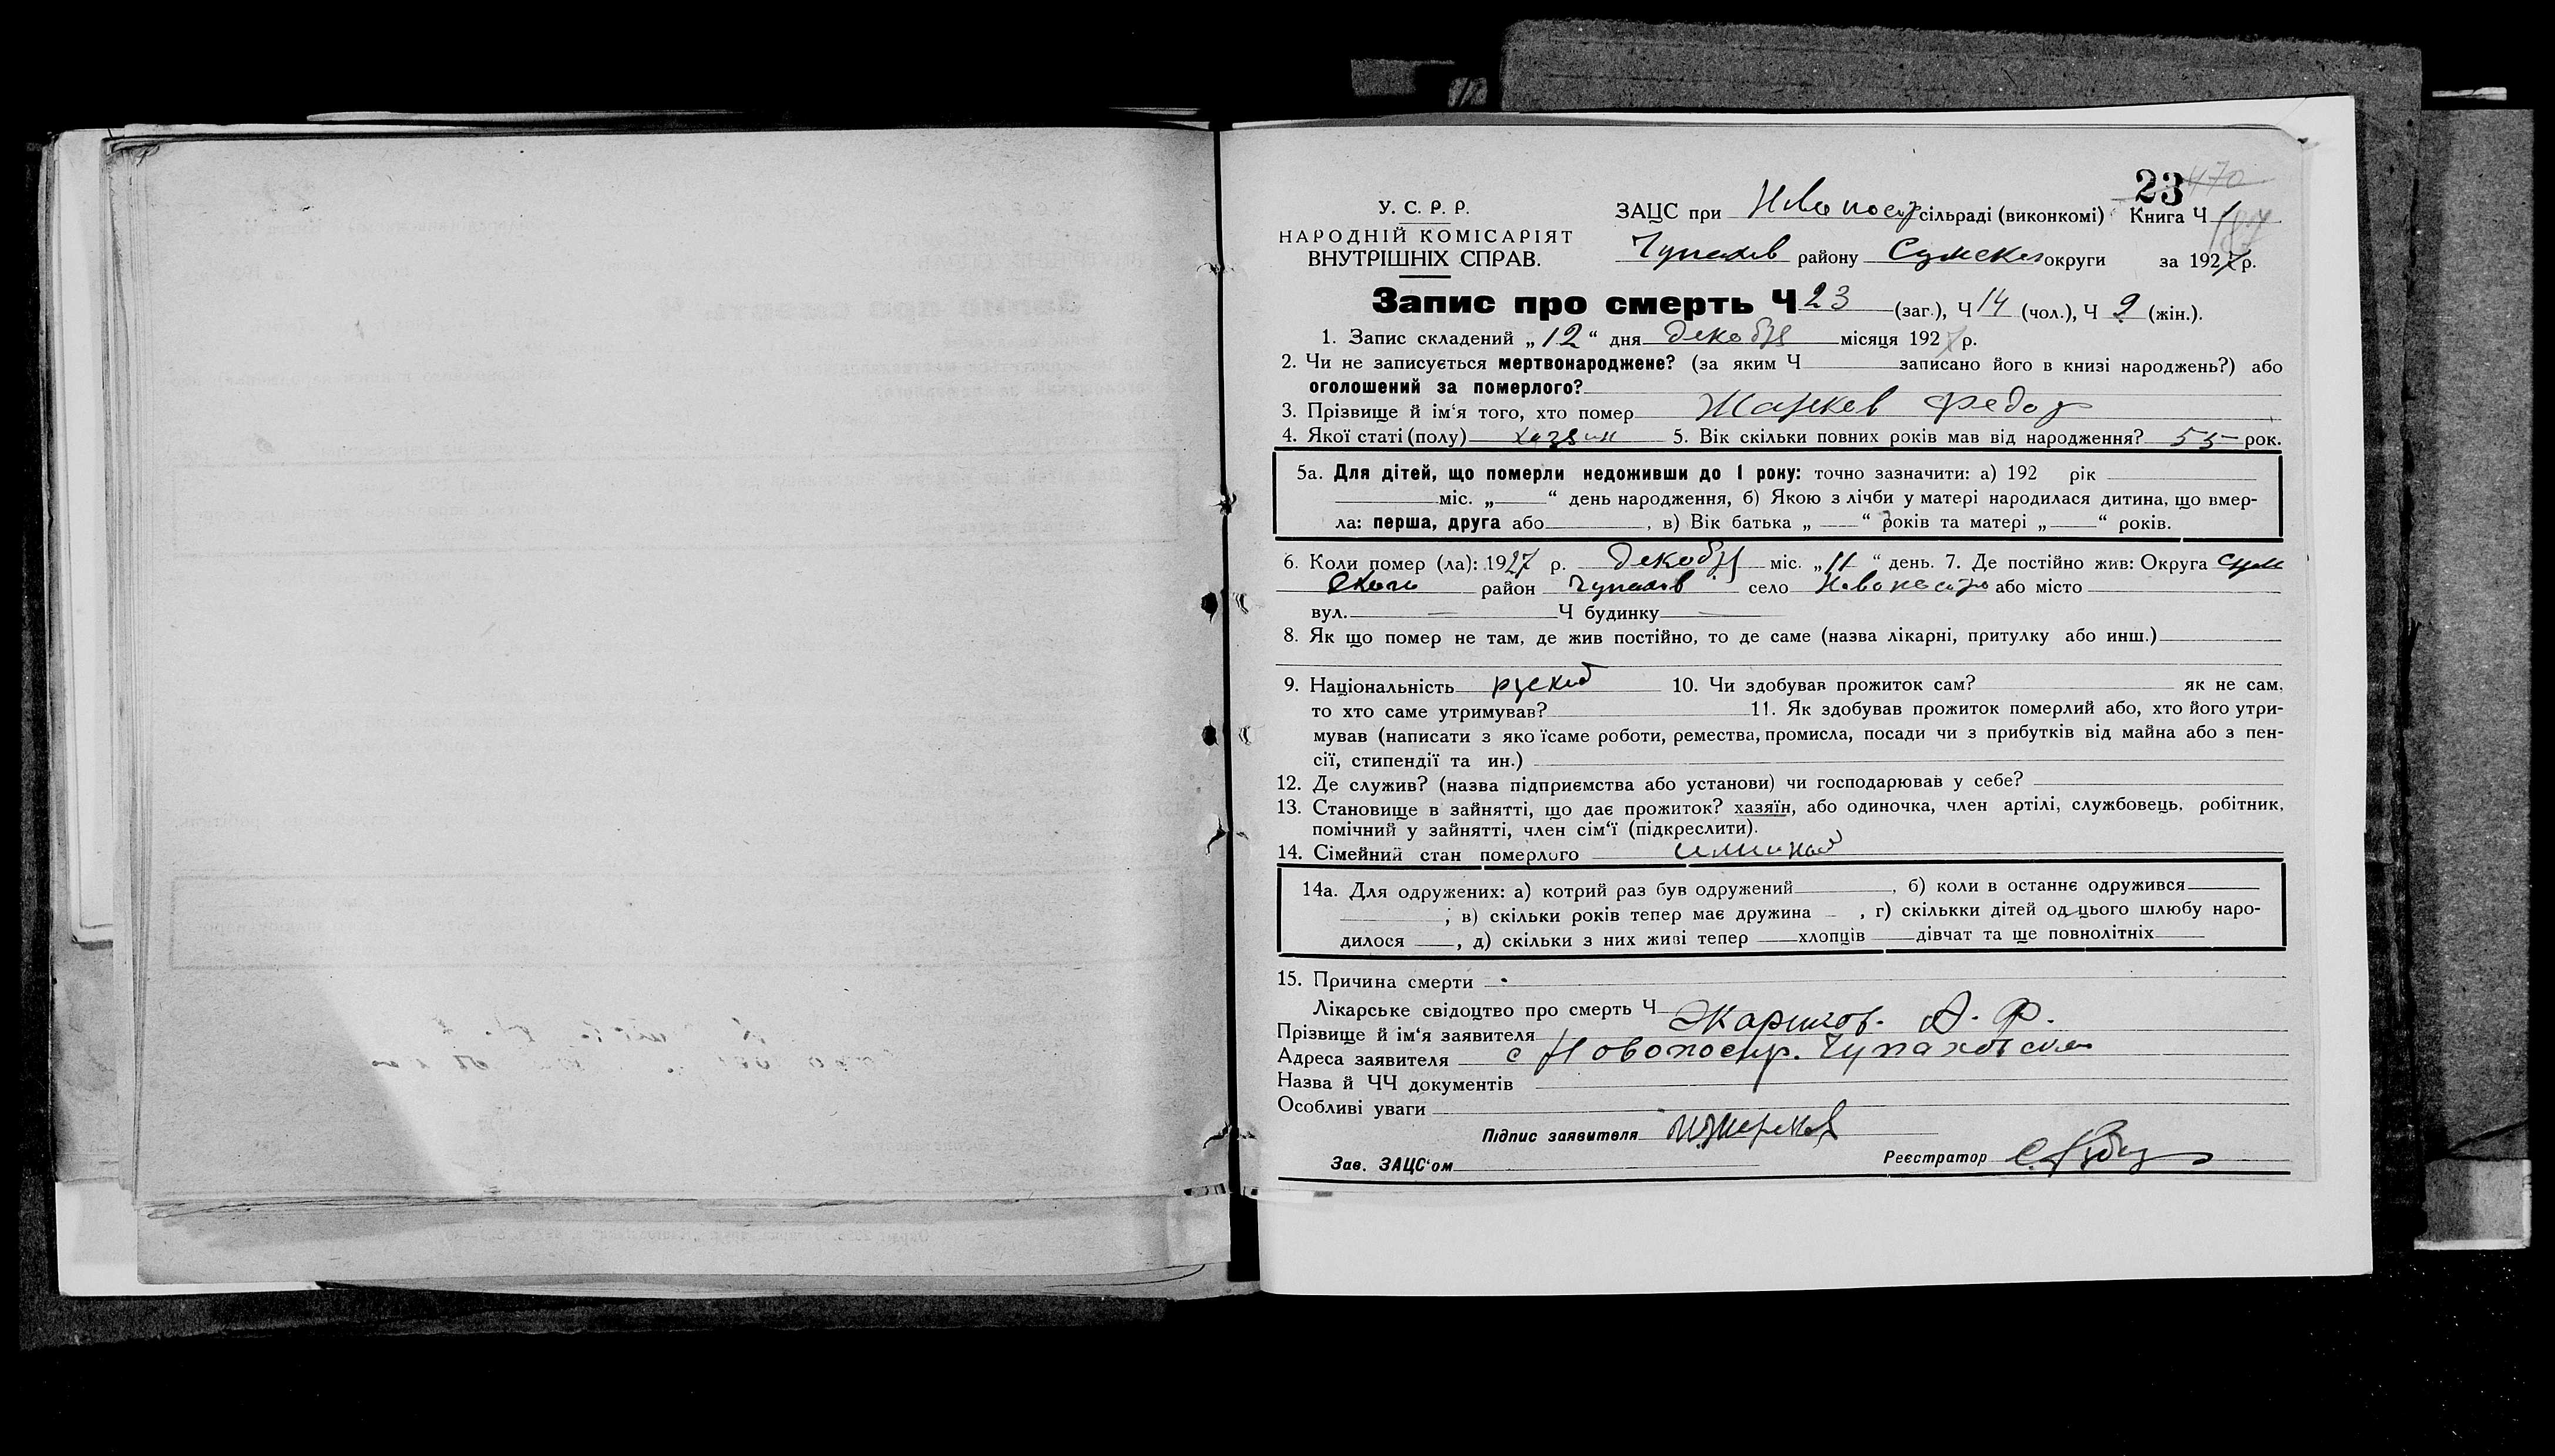 23 470
У. С. Р. Р.
НАРОДНІЙ КОМІСАРІЯТ
ВНУТРІШНІХ СПРАВ.
ЗАЦС при Новопостр сільраді (виконкомі) Книга Ч 1
Чупахов району Сумской округи за 1927 р.
Запис про смерть Ч 23 (заг.), Ч 14 (чол.), Ч 9 (жін.).
1. Запис складений „12“ дня декабря місяця 1927 р.
2. Чи не записується мертвонароджене? (за яким Ч записано його в книзі народжень?) або
оголошений за померлого?
3. Прізвище й ім‘я того, хто помер Жарков Федор
4. Якої статі (полу) хазяин 5. Вік скільки повних років мав від народження? 55 рок.
5а. Для дітей, що померли недоживши до 1 року: точно зазначити: а) 192 рік
міс. „ “ день народження, б) Якою з лічби у матері народилася дитина, що вмер-
ла: перша, друга або , в) Вік батька „ “ років та матері „ “ років.
6. Коли помер (ла): 1927 р. декабря міс. „11“ день. 7. Де постійно жив: Округа Сум
ского район Чупахов село Новопостро або місто
вул. Ч будинку
8. Як що помер не там, де жив постійно, то де саме (назва лікарні, притулку або инш.)
9. Національність руский 10. Чи здобував прожиток сам? як не сам,
то хто саме утримував? 11. Як здобував прожиток померлий або, хто його утри-
мував (написати з яко їсаме роботи, ремества, промисла, посади чи з прибутків від майна або з пен-
сії, стипендії та ин.)
12. Де служив? (назва підприємства або установи) чи господарював у себе?
13. Становище в зайнятті, що дає прожиток? хазяїн, або одиночка, член артілі, службовець, робітник,
помічний у зайнятті, член сім‘ї (підкреслити).
14. Сімейний стан померлого
14а. Для одружених: а) котрий раз був одружений , б) коли в останнє одружився
; в) скільки років тепер має дружина , г) скількки дітей од цього шлюбу наро-
дилося , д) скільки з них живі тепер хлопців дівчат та ще повнолітніх
15. Причина смерти
Лікарське свідоцтво про смерть Ч
Прізвище й ім‘я заявителя Жариков. А. Ф.
Адреса заявителя с Новопостр. Чупаховском
Назва й ЧЧ документів
Особливі уваги
Підпис заявителя
Зав. ЗАЦС‘ом Реєстратор